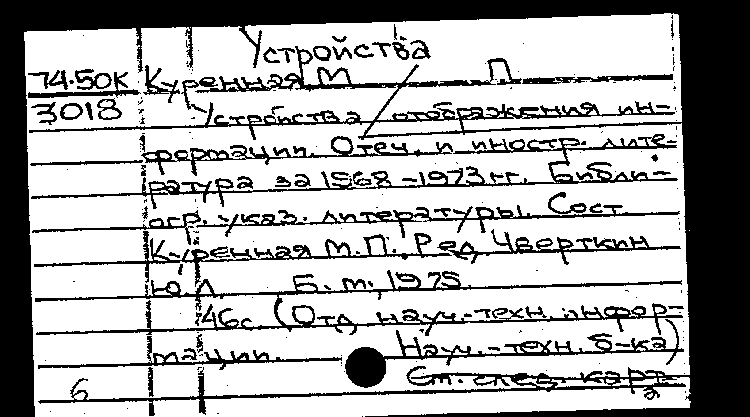 Устройства
74-50К Куренная М П
3018 Устройства отображения ин-
формации. Отеч. и иностр. лите-
ратура за 1968-1973 гг. Библи-
огр. указ. литературы. Сост.
Куренная М.П., Ред. Чверткин
Ю.Л. Б.м., 1975.
46с. (Отд. науч.-техн. инфор-
мации. Науч.-техн. б-ка)
6 См. след. карт.
2